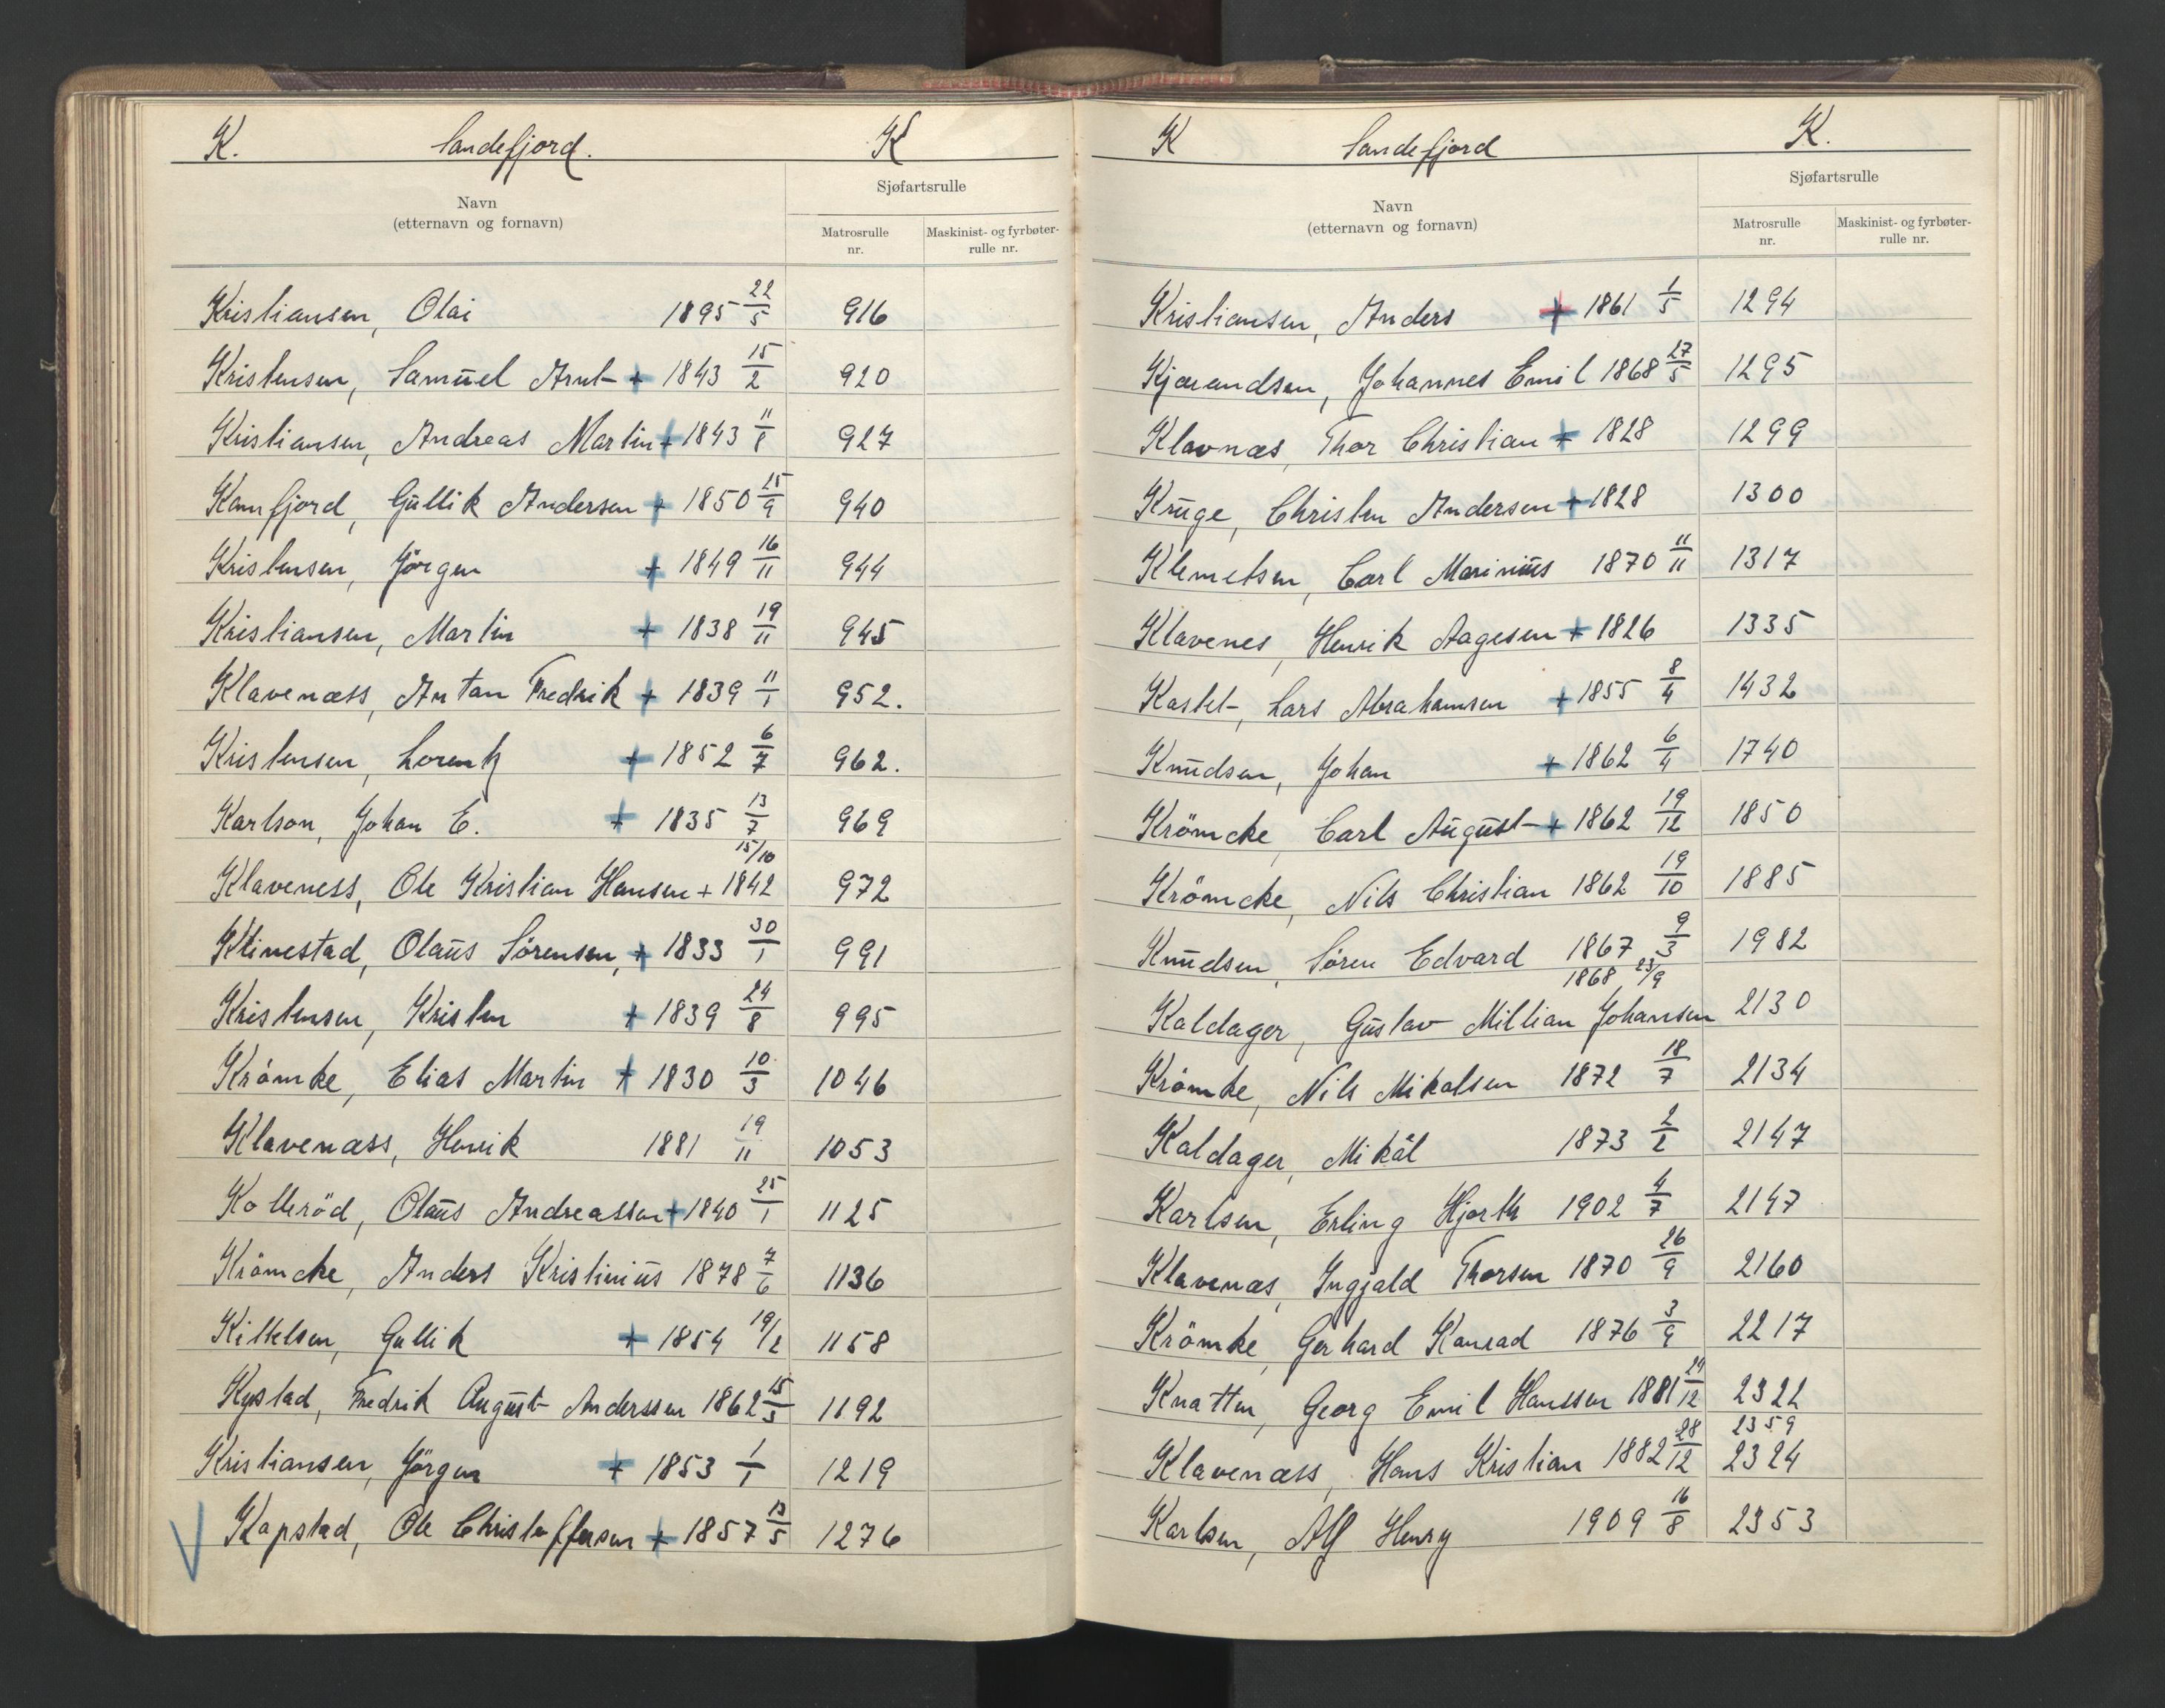 K. Sandefjord. K
Navn
(etternavn og fornavn)
Sjøfartsrulle
Matrosrulle nr.
Maskinist- og fyrbøter-rulle nr.
Kristiansen, Olai 1895 22/5 916
Kristensen, Samuel Arnt + 1843 15/2 920
Kristiansen, Andreas Martin + 1843 11/8 927
Kamfjord, Gullik Andersen + 1850 25/9 940
Kristensen, Jörgen + 1849 16/11 944
Kristiansen, Martin + 1838 19/11 945
Klavenæss, Antan Fredrik + 1839 11/1 952.
Kristensen, Lorentz + 1852 6/7 962.
Karlson, Johan E. + 1835 13/7 969
Klaveness, Ole Kristian Hansen + 1842 15/10 972
Klinestad, Olaus Sörensen, + 1833 30/1 991
Kristensen, Kristen + 1839 24/8 995
Krömke, Elias Martin + 1830 10/3 1046
Klavenæss, Henrik 1881 19/11 1053
Kolleröd, Olaus Andreassen + 1840 25/1 1125
Krömcke, Anders Kristinius 1878 7/6 1136
Kittelsen, Gullik + 1854 19/2 1158
Kystad, Fredrik August Anderssen 1862 15/3 1192
Kristiansen, Jörgen + 1853 1/1 1219
Kapstad, Ole Christoffersen + 1857 13/5 1276
K Sandefjord K.
Navn
(etternavn og fornavn)
Sjøfartsrulle
Matrosrulle nr.
Maskinist- og fyrbøter-rulle nr.
Kristiansen, Anders + 1861 1/5 1294
Kjærandsen, Johannes Emil 1868 27/5 1295
Klavnæs, Thor Christian + 1828 1299
Kruge, Christen Andersen + 1828 1300
Klemetsen, Carl Marinius 1870 11/11 1317
Klavenes, Henrik Aagesen + 1826 1335
Kastet, Lars Abrahamsen + 1855 8/4 1432
Knudsen, Johan + 1862 6/4 1740
Krömcke, Carl August + 1862 19/12 1850
Krömcke, Nils Christian 1862 19/10 1885
Knudsen, Sören Edvard 1867 9/3 1982
1868 23/9
Kaldager, Gustav Millian Johansen 2130
Krömke, Nils Mikalsen 1872 18/7 2134
Kaldager, Mikal 1873 2/2 2147
Karlsen, Erling Hjorth 1902 4/7 2147
Klavenæs, Ingjald Thorsen 1870 26/9 2160
Krömke, Gerhard Konrad 1876 3/9 2217
Knatten, Georg Emil Hanssen 1881 29/12 2322
2359
Klavenæss, Hans Kristian 1882 28/12 2324
Karlsen, Alf Henry 1909 16/8 2353